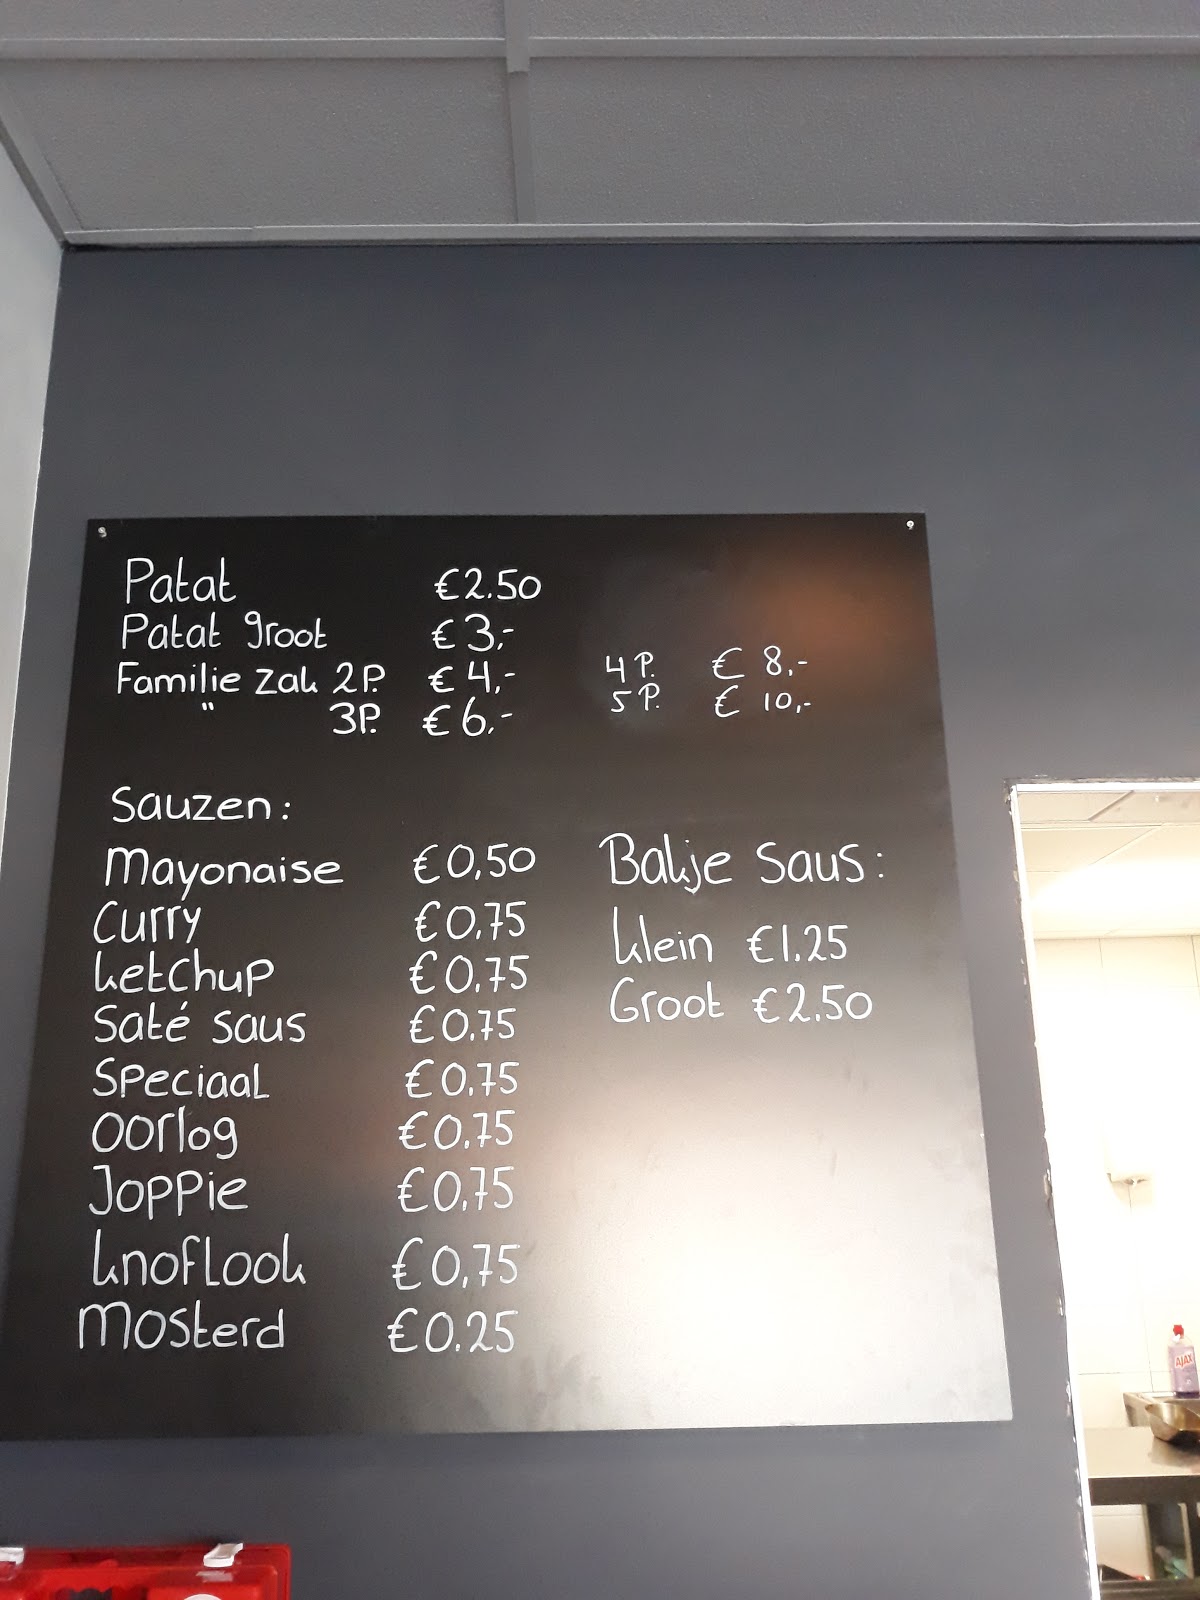 Patat €2.50
Patat groot €3,-
Familie zak 2P. €4,- 4P. €8,-
" 3P. €6,- 5P. €10,-
Sauzen:
Mayonaise €0,50
Curry €0,75
ketchup €0,75
Saté saus €0.75
Speciaal €0.75
Oorlog €0.75
Joppie €0,75
knoflook €0,75
Mosterd €0.25
Bakje saus:
klein €1.25
Groot €2.50
AJAX